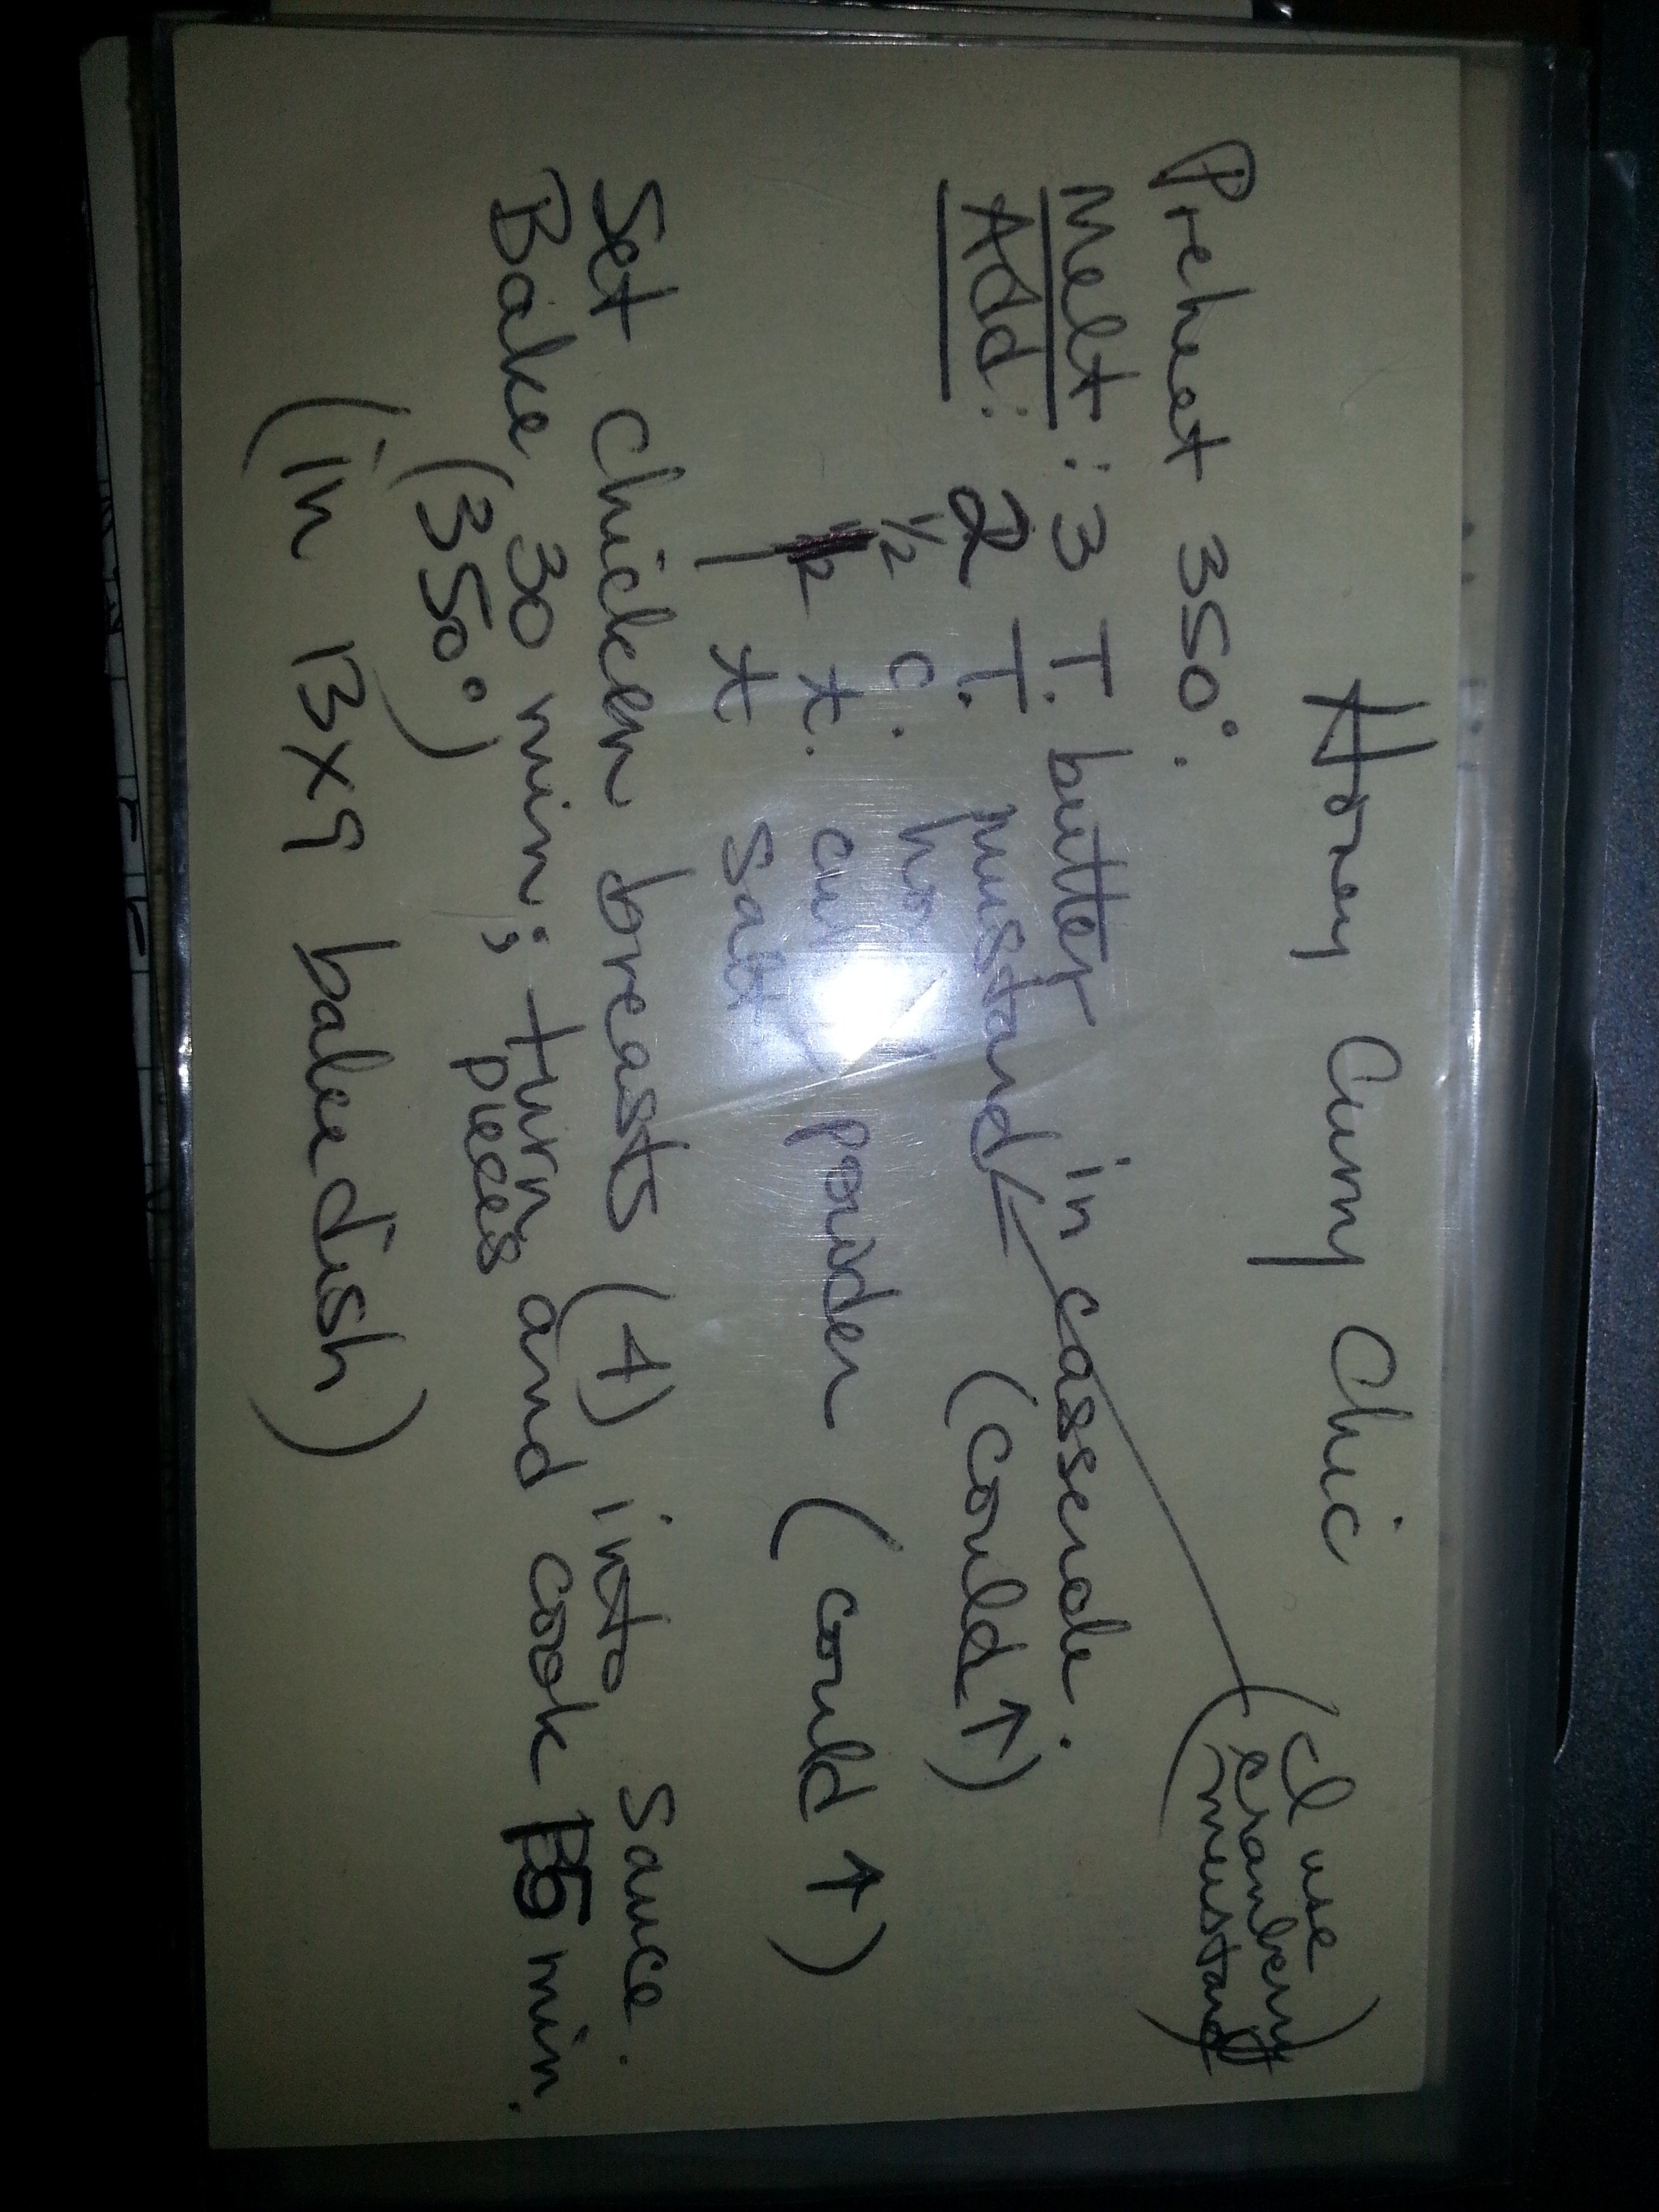 Honey Curry Chic
(I use
cranberry
mustard)
Preheat 350°.
Melt: 3 T. butter in casserole.
Add: 2 T. mustard (could ↑)
1/2 c.
t. powder (could ↑)
1 t salt
Set chicken breasts (4) into sauce.
Bake 30 min; turn and cook min.
pieces
(350°)
(in 13x9 bake dish)